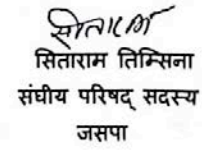 सिताराम
सिताराम तिम्सिना
संघीय परिषद् सदस्य
जसपा